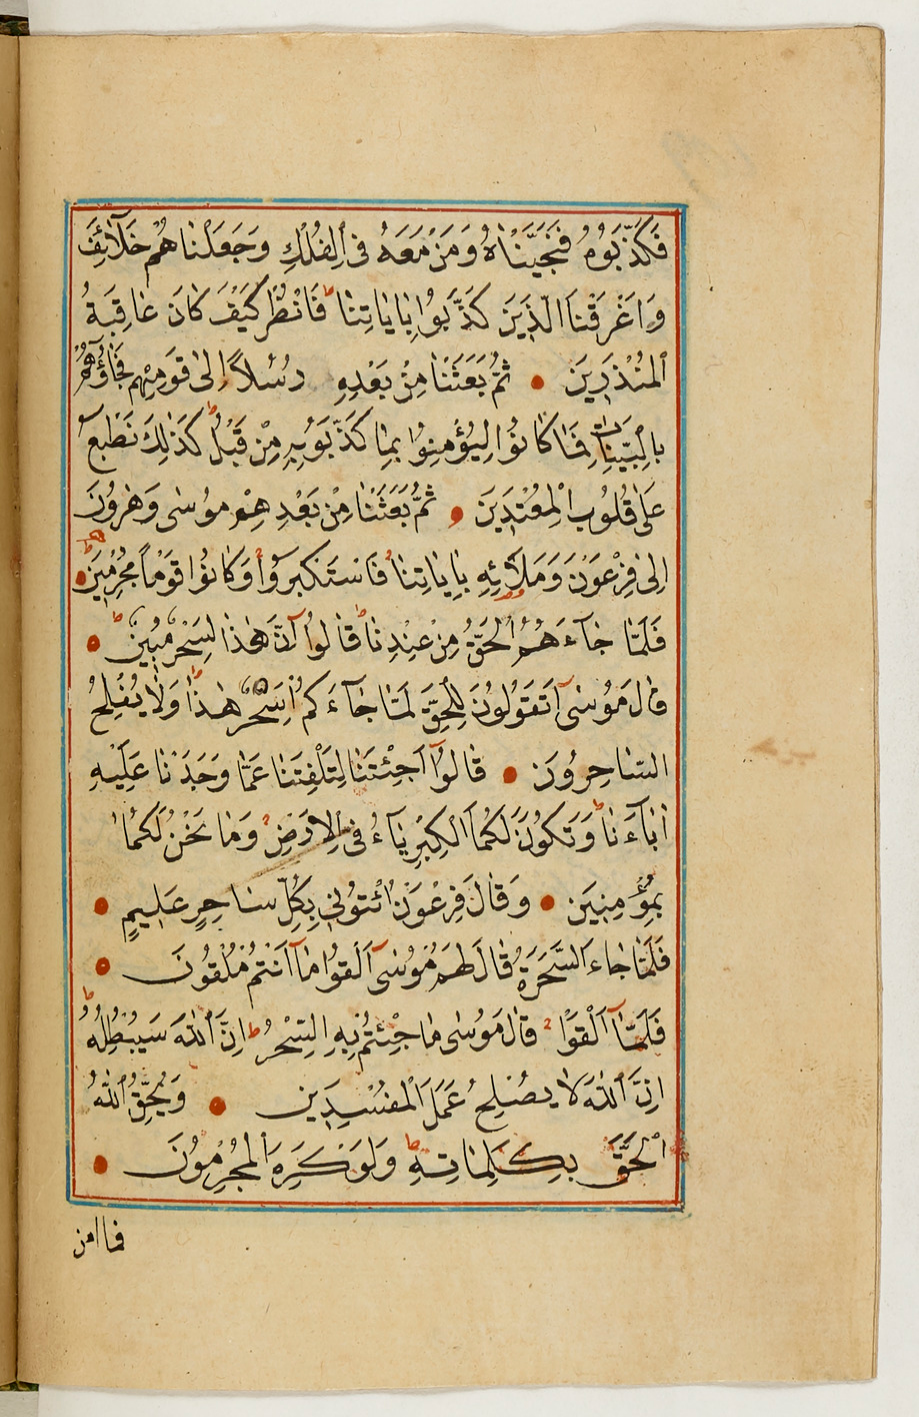 فَكَذَّبُوهُ فَنَجَّيْنَاهُ وَمَنْ مَعَهُ فِي الْفُلْكِ وَجَعَلْنَاهُمْ خَلَآئِفَ
وَاَغْرَقْنَا الَّذِينَ كَذَّبُوا بِاٰيَاتِنَا ط فَانْظُرْ كَيْفَ كَانَ عَاقِبَةُ
الْمُنْذَرِينَ • ثُمَّ بَعَثْنَا مِنْ بَعْدِهِ رُسُلًا اِلٰى قَوْمِهِمْ فَجَاؤُهُمْ
بِالْبَيِّنَاتِ فَمَا كَانُوا لِيُؤْمِنُوا بِمَا كَذَّبُوا بِهِ مِنْ قَبْلُ ط كَذٰلِكَ نَطْبَعُ
عَلٰى قُلُوبِ الْمُعْتَدِينَ • ثُمَّ بَعَثْنَا مِنْ بَعْدِهِمْ مُوسٰى وَهٰرُونَ
اِلٰى فِرْعَوْنَ وَمَلَائِهِ بِاٰيَاتِنَا فَاسْتَكْبَرُوا وَكَانُوا قَوْمًا مُجْرِمِينَ •
فَلَمَّا جَآءَهُمُ الْحَقُّ مِنْ عِنْدِنَا قَالُوا اِنَّ هٰذَا لَسِحْرٌ مُبِينٌ •
قَالَ مُوسٰى اَتَقُولُونَ لِلْحَقِّ لَمَّا جَآءَكُمْ اَسِحْرٌ هٰذَا ط وَلَا يُفْلِحُ
السَّاحِرُونَ • قَالُوا اَجِئْتَنَا لِتَلْفِتَنَا عَمَّا وَجَدْنَا عَلَيْهِ
اٰبَآءَنَا وَتَكُونَ لَكُمَا الْكِبْرِيَآءُ فِي الْاَرْضِ ط وَمَا نَحْنُ لَكُمَا
بِمُؤْمِنِينَ • وَقَالَ فِرْعَوْنُ ائْتُونِي بِكُلِّ سَاحِرٍ عَلِيمٍ •
فَلَمَّا جَاءَ السَّحَرَةُ قَالَ لَهُمْ مُوسٰى اَلْقُوا مَا اَنْتُمْ مُلْقُونَ •
فَلَمَّا اَلْقَوْا قَالَ مُوسٰى مَا جِئْتُمْ بِهِ السِّحْرُ ط اِنَّ اللّٰهَ سَيُبْطِلُهُ ط
اِنَّ اللّٰهَ لَا يُصْلِحُ عَمَلَ الْمُفْسِدِينَ • وَيُحِقُّ اللّٰهُ
الْحَقَّ بِكَلِمَاتِهِ وَلَوْ كَرِهَ الْمُجْرِمُونَ •
فما امن